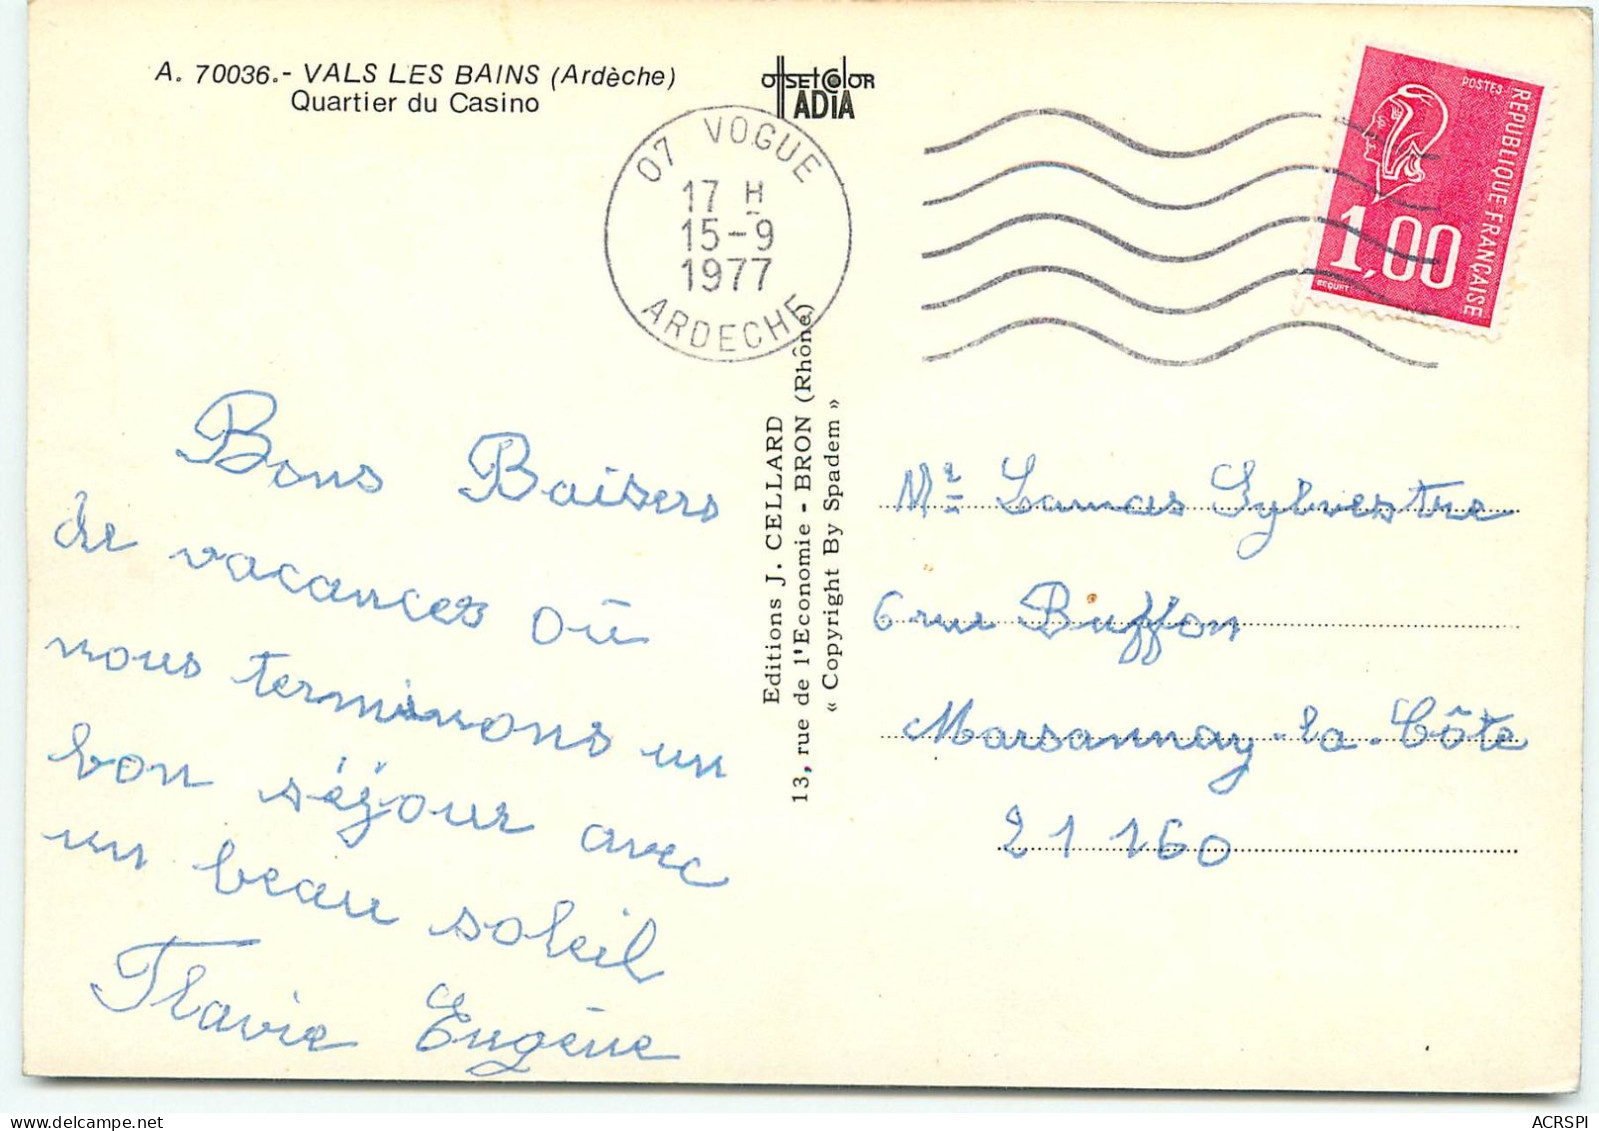 A. 70036.- VALS LES BAINS (Ardèche)
Quartier du Casino
OffSEt COlOR
ADIA
07 VOGUE
17 H
15-9
1977
ARDECHE
POSTES
REPUBLIQUE FRANCAISE
1,00
BEQUET
Bons Baisers
de vacances où
nous terminons un
bon séjour avec
un beau soleil
Flavie Eugène
Editions J. CELLARD
13, rue de l'Economie - BRON (Rhône)
« Copyright By Spadem »
Mr Lamas Sylvestre
6 rue Buffon
Marsannay-la-Côte
21 160
ACRSPI